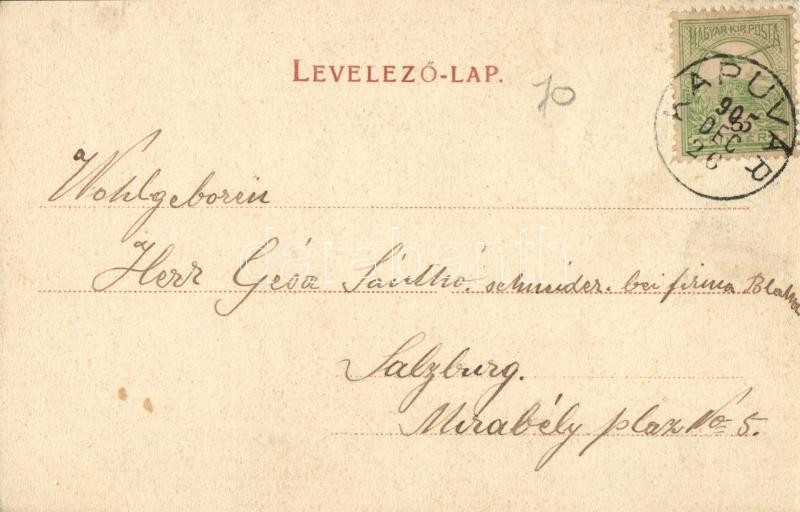 MAGYAR KIR. POSTA
LEVELEZŐ-LAP.
70
KAPUVÁR
905
DEC
26
Wohlgeborin
Herr Gésa Sánthó. schneider. bei firma Blaha
Salzburg.
Mirabély plaz No 5.
darabanth